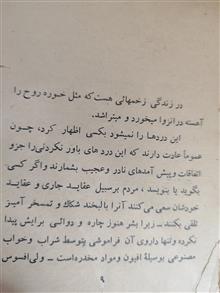 در زندگی زخمهائی هست که مثل خوره روح را
آهسته در انزوا میخورد و میتراشد.
این دردها را نمیشود بکسی اظهار کرد، چون
عموماً عادت دارند که این درد های باور نکردنی را جزو
اتفاقات و پیش آمدهای نادر و عجیب بشمارند و اگر کسی
بگوید یا بنویسد، مردم بر سبیل عقاید جاری و عقاید
خودشان سعی می کنند آنرا با لبخند شکاک و تمسخر آمیز
تلقی بکنند ـ زیرا بشر هنوز چاره و دوائی برایش پیدا
نکرده و تنها داروی آن فراموشی بتوسط شراب و خواب
مصنوعی بوسیلهٔ افیون و مواد مخدره است ـ ولی افسوس
۹